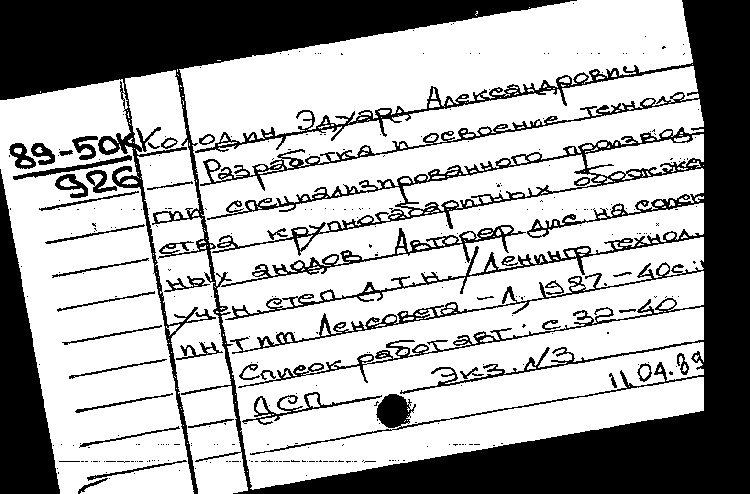 89-50К
926
Колодин, Эдуард Александрович
Разработка и освоение техноло-
гии специализированного производ-
ства крупногабаритных обожжен
ных анодов: Автореф. дис. на соиск
учен. степ. д.т.н. / Ленингр. технол.
ин-т им. Ленсовета. - Л., 1987. - 40с.:
Список работ авт.: с. 32-40
ДСП. Экз. N3.
11.04.89